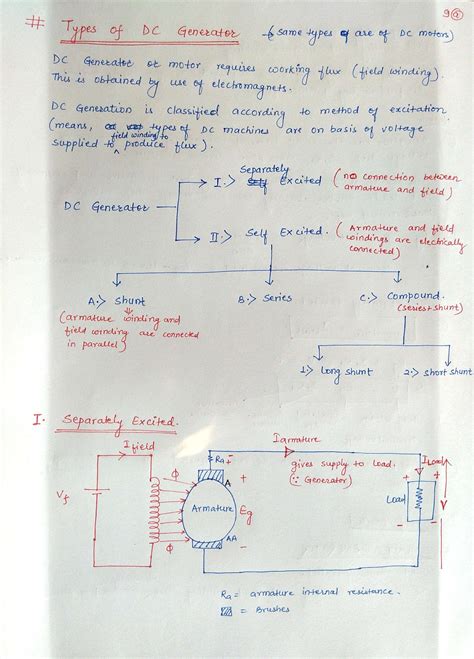 9(a)
# Types of DC Generator (& same types of are of DC motors)
DC Generator or motor requires working flux (field winding).
This is obtained by use of electromagnets.
DC Generation is classified according to method of excitation
(means, types of DC machines are on basis of voltage
field winding to
supplied to produce flux).
Separately
I.> Excited (no connection between
armature and field)
DC Generator
II.> Self Excited. (Armature and field
windings are electrically
connected)
A.> Shunt
B.> Series
C.> Compound.
(series+shunt)
(armature winding and
field winding are connected
in parallel)
1.> long shunt
2.> short shunt
I. Separately Excited.
I field
I armature
I Load
Ra
gives supply to load.
(∵ Generator)
Vf
ϕ
A
+
-
Armature
Eg
Load
+
-
V
ϕ
AA
Ra = armature internal resistance.
= Brushes